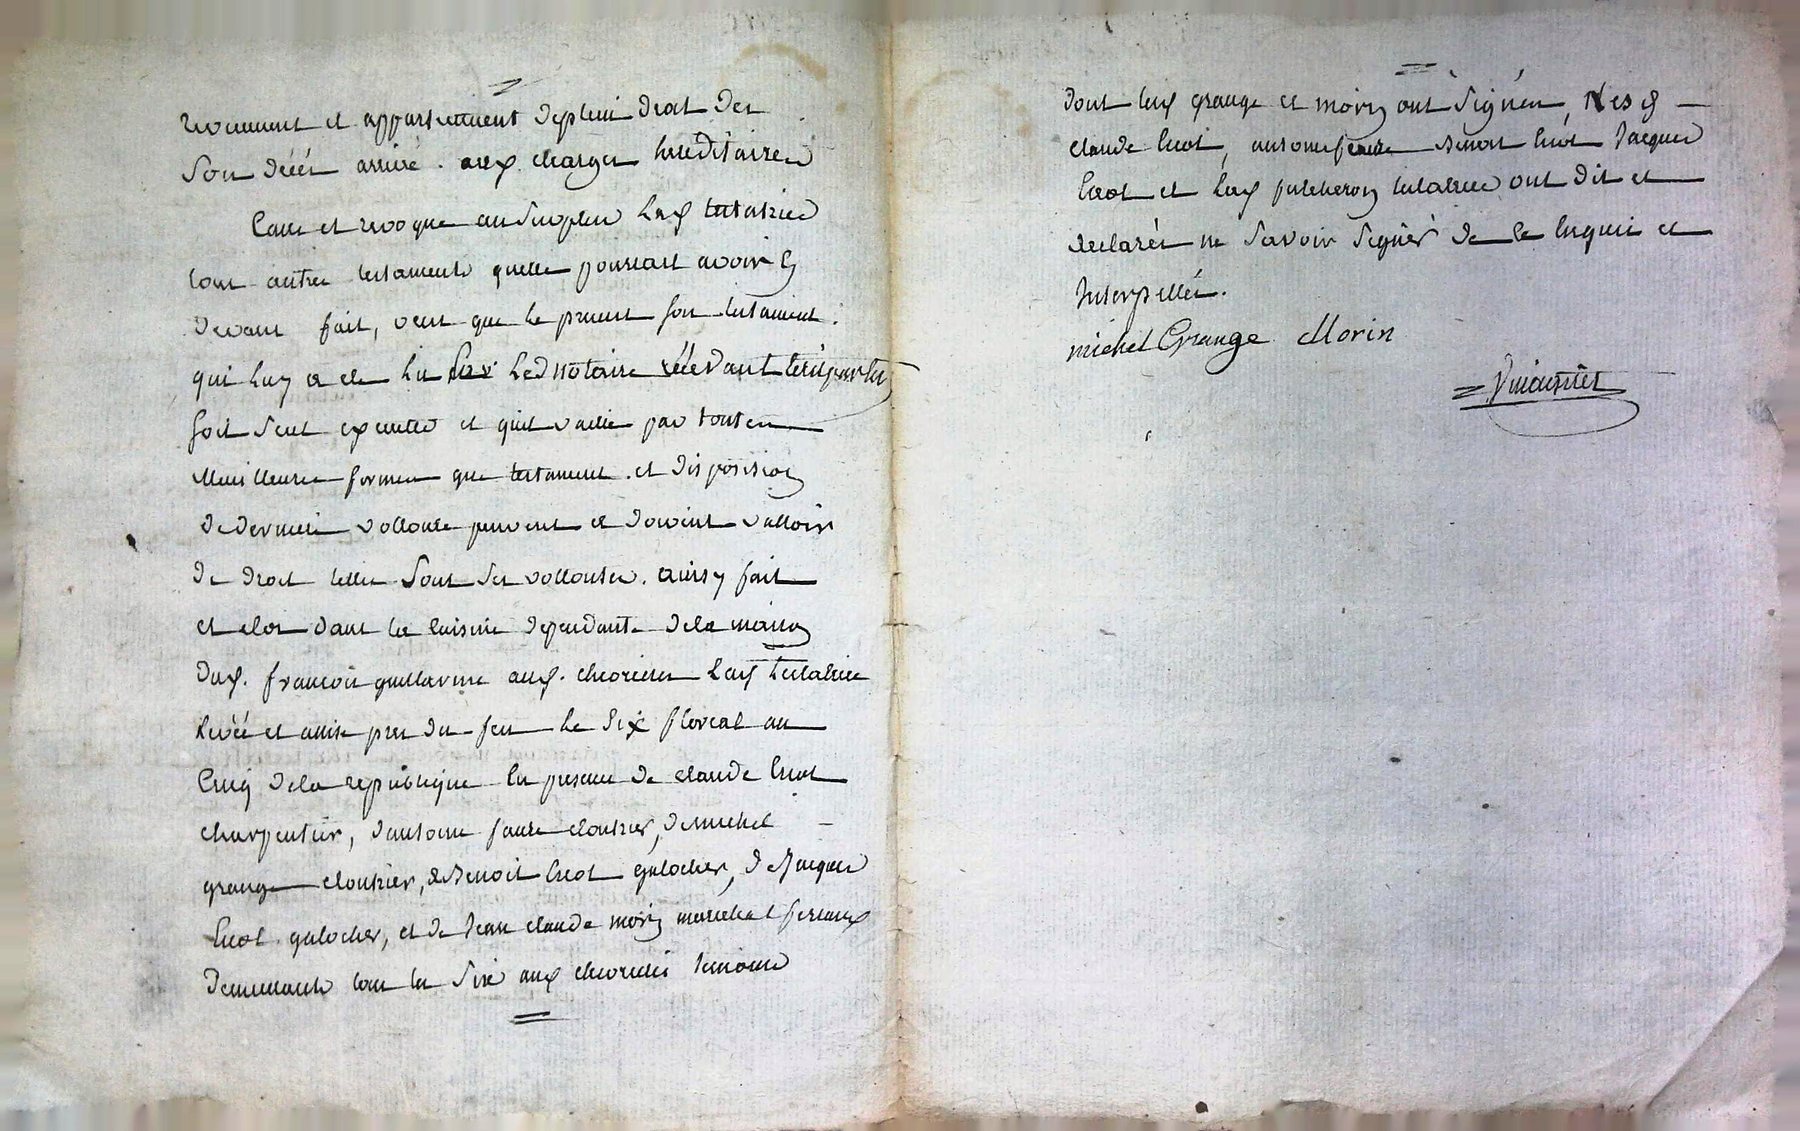 et appartiennent deplein droit des
son décés arrivé. aux charges hereditaires
Casse et revoque au surplus lad testatrice
tous autres testaments quelle pourrait avoir cy
devant fait, veut que le present son testament.
qui luy a ete lu par led notaire
soit seul executé et quil vaille par toutes
Meilleures formes que testament. et disposision
de derniere vollonte peuvent et doivent valloir
de droit telles sont ses vollontes. ainsy fait
et clos dans la cuisine dependante dela maison
dud. françois guillarme aud. levée et assise pres du feu le six floreal an
Cinq dela republique en presence de claude
charpentier, dantoine faure cloutier, de michel
grange cloutier, de Benoit galocher, de Jacques
galocher, et de Jean claude morin marechal
demeurants tous les six aud temoins
dont led grange et morin ont signés, Nesd
claude antoine faure Benoit Jacques
et lad testatrice ont dit et
declarés ne savoir signer de ce enquis et
Interpellés.
michel Grange Morin